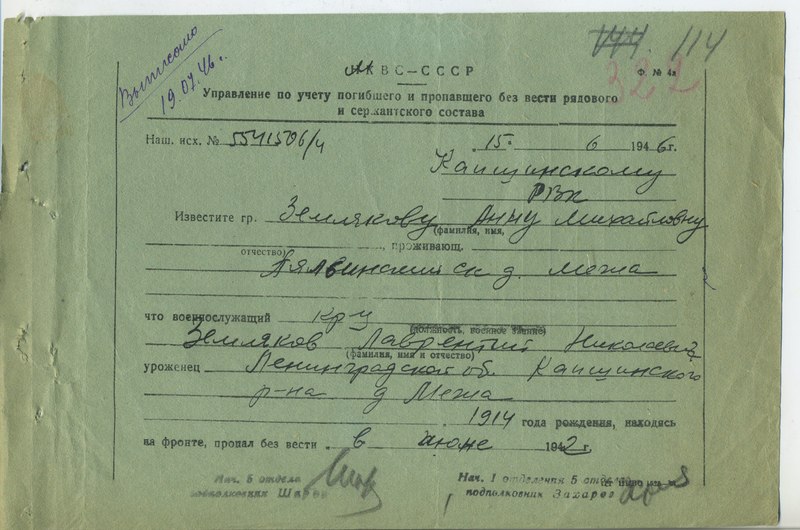 Выписано
19.07.46г.
144. 114
322
НКВС—СССР
Ф. № 4а
Управление по учету погибшего и пропавшего без вести рядового
и сержантского состава
Наш. исх. № 5541506/ч
15. 6 1946г.
Капшинскому
РВК
Известите гр. Землякову Анну Михайловну
(фамилия, имя,
отчество) , проживающ.
Пялвинский с д. Межа
что военнослужащий кр-ц
(должность, военное звание)
Земляков Лаврентий Николаевич
(фамилия, имя и отчество)
уроженец Ленинградской об. Капшинского
р-на д Межа
1914 года рождения, находясь
на фронте, пропал без вести в июне 1942 г.
Нач. 5 отдела
подполковник Шаров
Нач. 1 отделения 5 отдела
подполковник Захаров